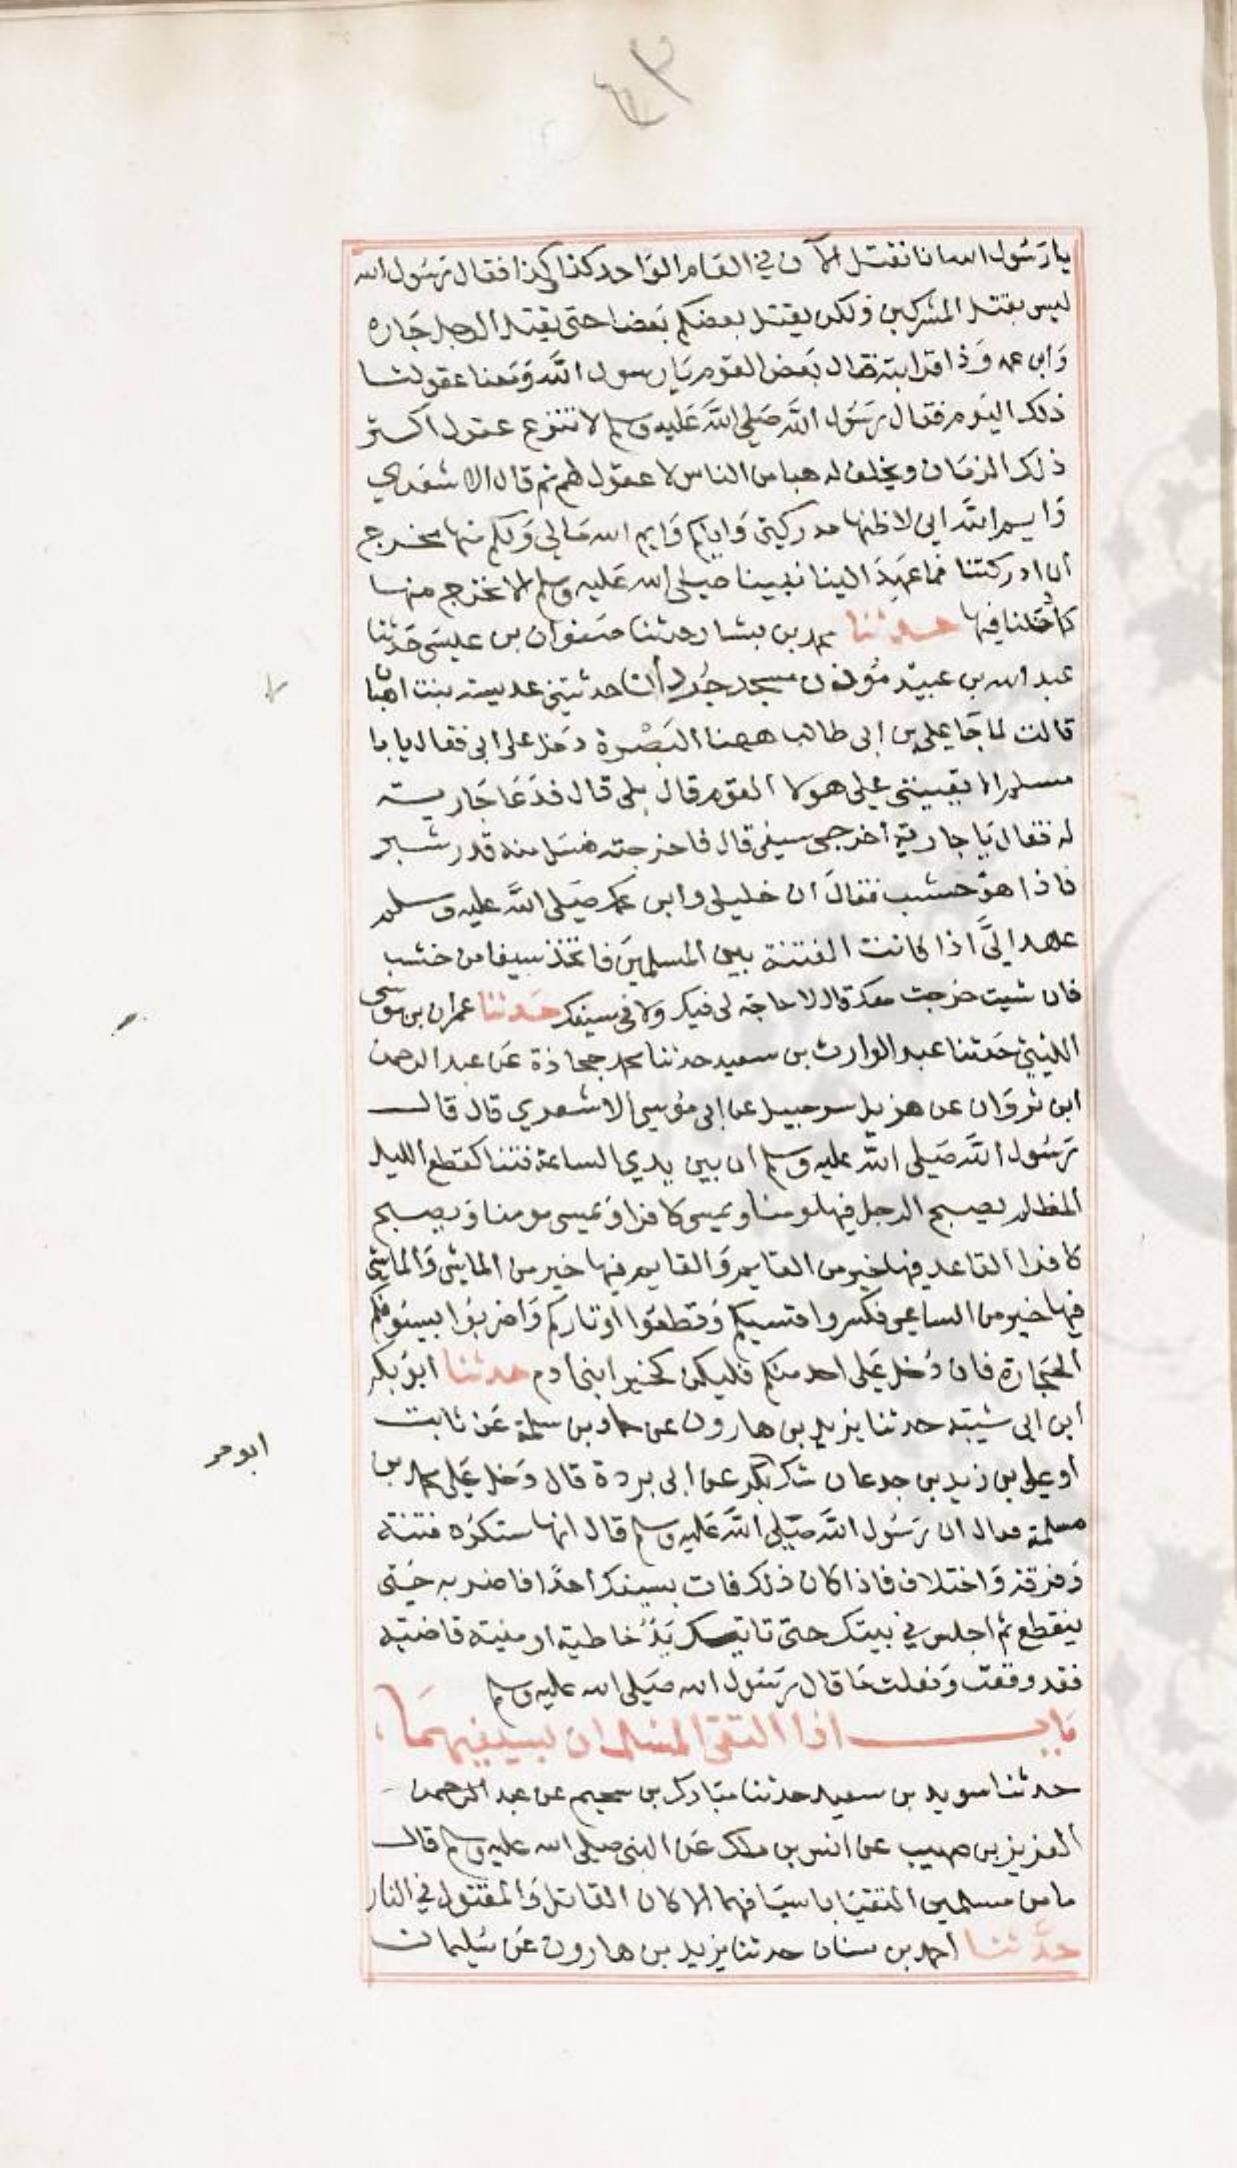 يا رَسُول الله انا نقتل الآن في العَام الوَاحد كذا كذا فقال رَسُول الله
ليس بقتل المشركين ولكن يقتل بعضكم بَعضا حتى يقتل الرجل جَاره
وَابن عمه وَذا قرابته فقال بَعض القوم يَا رسول اللَّه وَمَعنا عقولنا
ذلك اليَوم فقال رَسُول اللَّه صَلى اللَّه عَليه وسلم لا تنزع عقول اكثر
ذلك الزمَان ويخلف له هبا من الناس لا عقول لهم ثم قال الاشعَري
وَايم اللَّه اني لاظنها مدركيتي وَاياكم وَايم الله مَا لي وَلكم منها مخرج
ان ادركتنا فما عَهِدَ الينا نبينا صَلى الله عَليه وسلم الا نخرج منها
كما دخلنا فيها حدثنا محمد بن بشار حدثنا صَفوان بن عيسَى حَدثنا
عبد الله بن عبيد مُوذن مسجد جُردان حدثتني عديسة بنت اهبا
قالت لما جَا علي بن ابي طالب ههنا البَصْرة دَخل على ابي فقال يا با
مسلم الا تعينني على هولا القوم قال بلى قال فدَعَا جَارية
له فقال يَا جارية أخرجي سيفي قال فاخرجته فسَل منه قدر شبر
فاذا هوَ خشب فقالَ ان خليلي وابن عمك صَلى اللَّه عليه وسلم
عهد اليَّ اذا كانت الفتنة بين المسلمينَ فاتخذ سيفا من خشب
فان شيت خرجت معك قال لا حاجة لي فيك ولا في سيفك حَدثنا عمران بن موسَى
الليثي حَدثنا عبد الوارث بن سعيد حدثنا محمد جحاذة عَن عبد الرحمن
ابن ثروَان عن هزيل سرحبيل عن ابي مُوسى الاشعري قال قال
رَسُول اللَّه صَلى اللَّه عليه وسلم ان بين يدي الساعة فتنا كقطع الليل
المظلم يصبح الرجل فيها مومنا ويمسي كافرا وَيمسي مومنا وَيصبح
كافرا القاعد فيها خير من القايم وَالقايم فيها خير من الماشي وَالماشي
فيها خير من الساعي فكسروا قسيكم وَقطعُوا اوتاركم وَاضربُوا بسيُوفكم
الحَجارة فان دُخل عَلى احد منكم فليكن كخير ابني ادم حدثنا ابوُ بكر
ابن ابي شيبة حدثنا يزيد بن هارون عن حماد بن سلمة عَن ثابت
او علي بن زيد بن جدعان شك ابُو بكر عن ابي بردة قال دَخل عَلى محمد بن
ابو محر
مسلمة فقال ان رَسُول اللَّه صَلى اللَّه عَليه وسلم قال انها ستكوُن فتنة
وَفرقة وَاختلاف فاذا كان ذلك فات بسيفك احدًا فاضربه حَتى
ينقطع ثم اجلس في بيتك حتى تاتيك يَدُ خاطية او منية قاضية
فقد وقعت وَفعلت مَا قال رَسُول الله صَلى الله عليه وسلم
بَاب اذا التقى المسلمان بسيفيهمَا
حدثنا سويد بن سعيد حدثنا مبَارك بن سحيم عن عبد الرحمن
العزيز بن صهيب عن انس بن ملك عَن النبي صلى الله عليه وسلم قال
ما من مسلمين التقيَا باسيَافهما الا كان القاتل وَالمقتول في النار
حدَّثنا احمد بن سنان حدثنا يزيد بن هارون عَن سُليمان